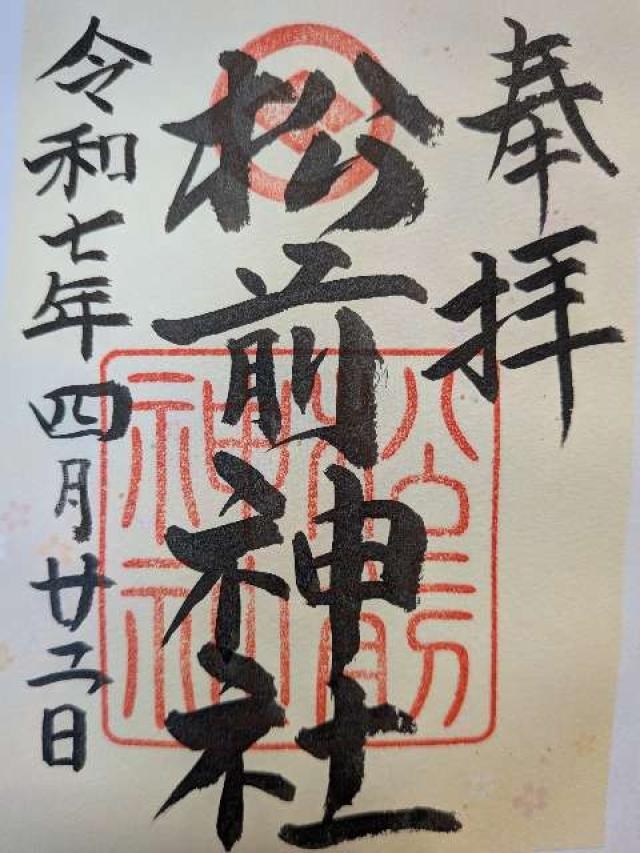 奉拝
松前神社
令和七年四月廿二日
松前神社